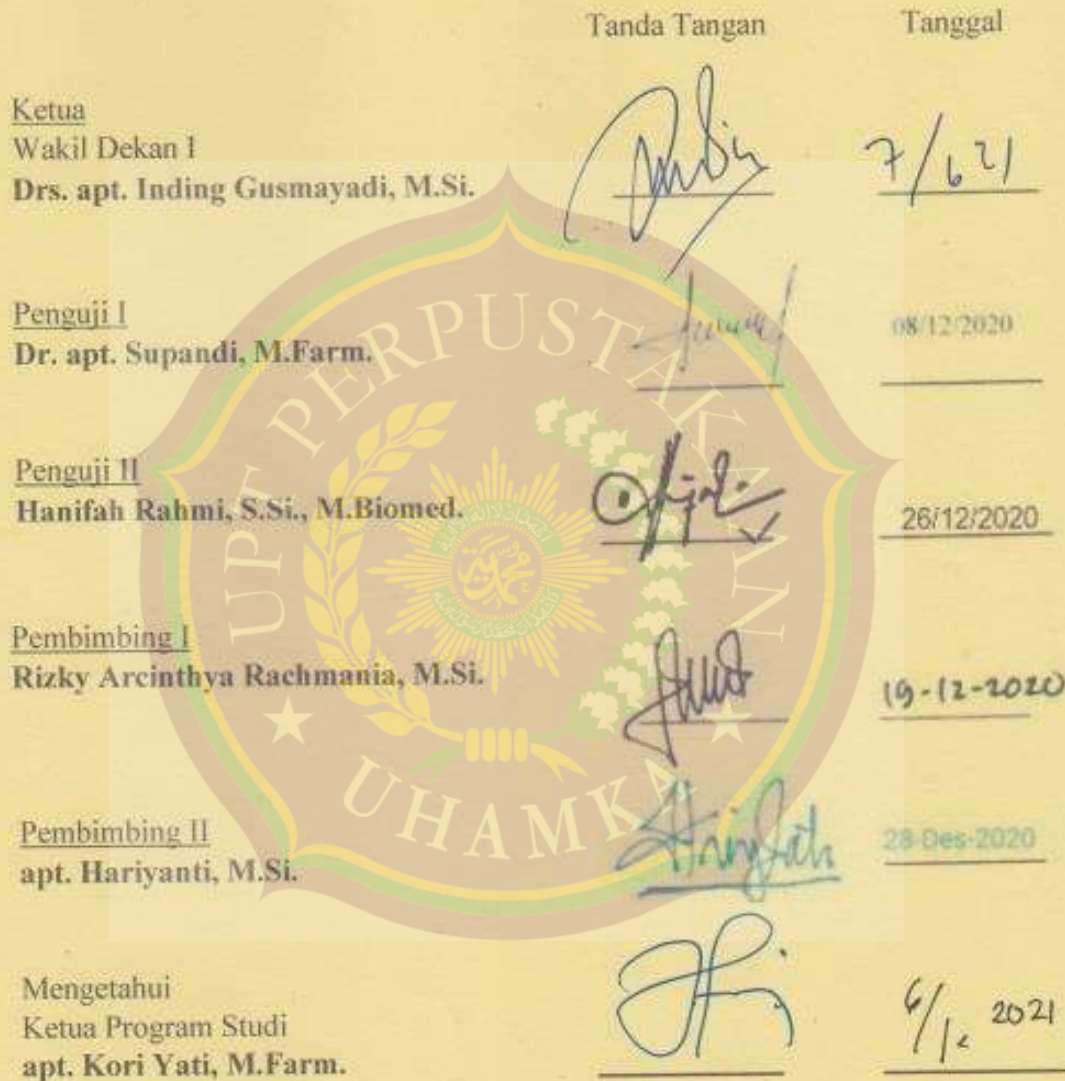 Tanda Tangan Tanggal
Ketua
Wakil Dekan I
Drs. apt. Inding Gusmayadi, M.Si. 7/6 21
Penguji I
Dr. apt. Supandi, M.Farm. 08/12/2020
Penguji II
Hanifah Rahmi, S.Si., M.Biomed. 26/12/2020
Pembimbing I
Rizky Arcinthya Rachmania, M.Si. 19-12-2020
Pembimbing II
apt. Hariyanti, M.Si. 28-Des-2020
Mengetahui
Ketua Program Studi
apt. Kori Yati, M.Farm. 2021
UPT PERPUSTAKAAN
UHAMKA